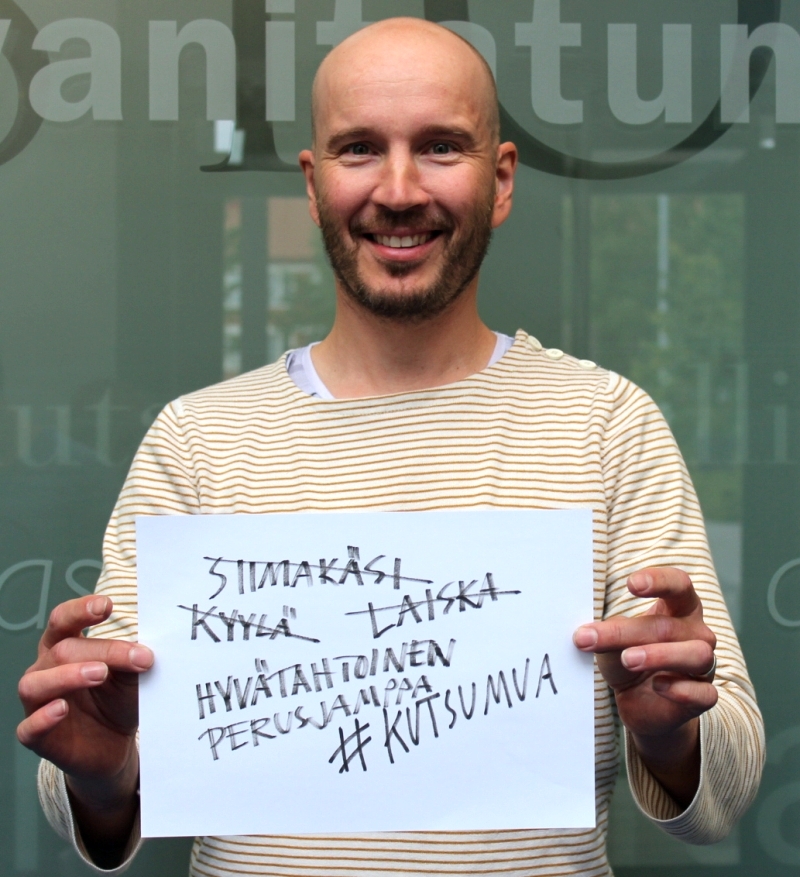 anitatum
SIIMAKÄSI
KYYLÄ LAISKA
HYVÄTAHTOINEN
PERUSJAMPPA
#KUTSUMVA